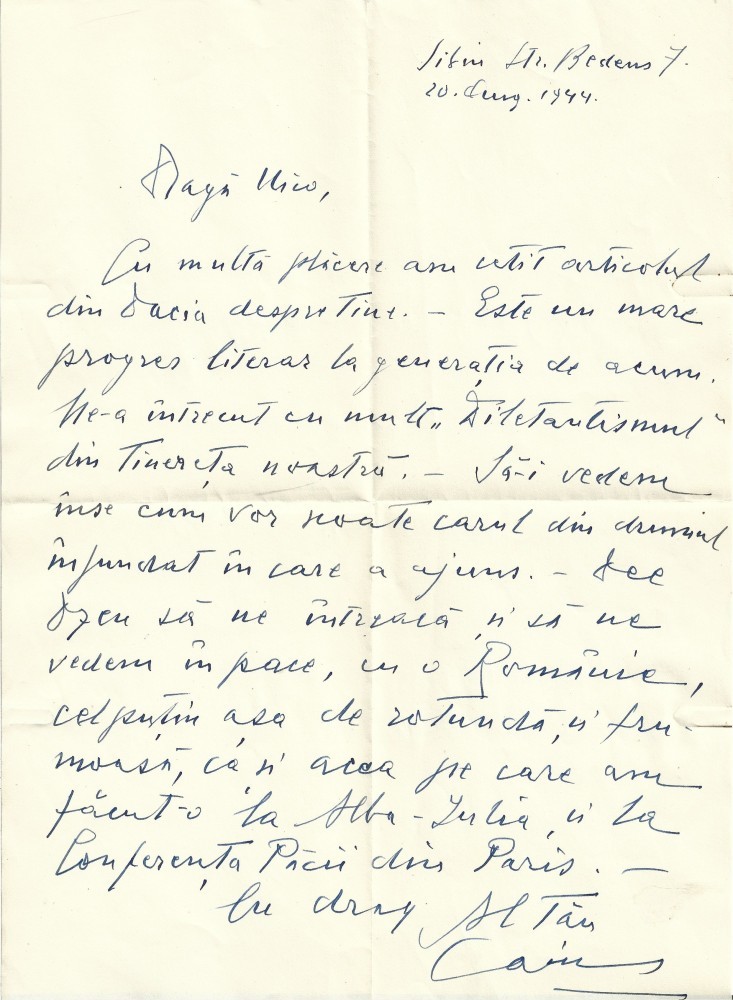 Sibiu Str. Bedeus 7.
20. Aug. 1944.
Dragă Nico,
Cu multă plăcere am cetit articolul
din Dacia despre Tine. — Este un mare
progres literar la generația de acum.
Ne-a întrecut cu mult „Diletantismul“
din Tinerețea noastră. — Să-i vedem
înse cum vor scoate carul din drumul
înfundat în care a ajuns. — Dee
Dzeu să ne întreacă și să ne
vedem în pace, cu o Românie,
cel puțin așa de rotundă și fru-
moasă, ca și aceea pe care am
făcut-o la Alba-Iulia și la
Conferența Păcii din Paris. —
Cu drag Al Tău
Caius